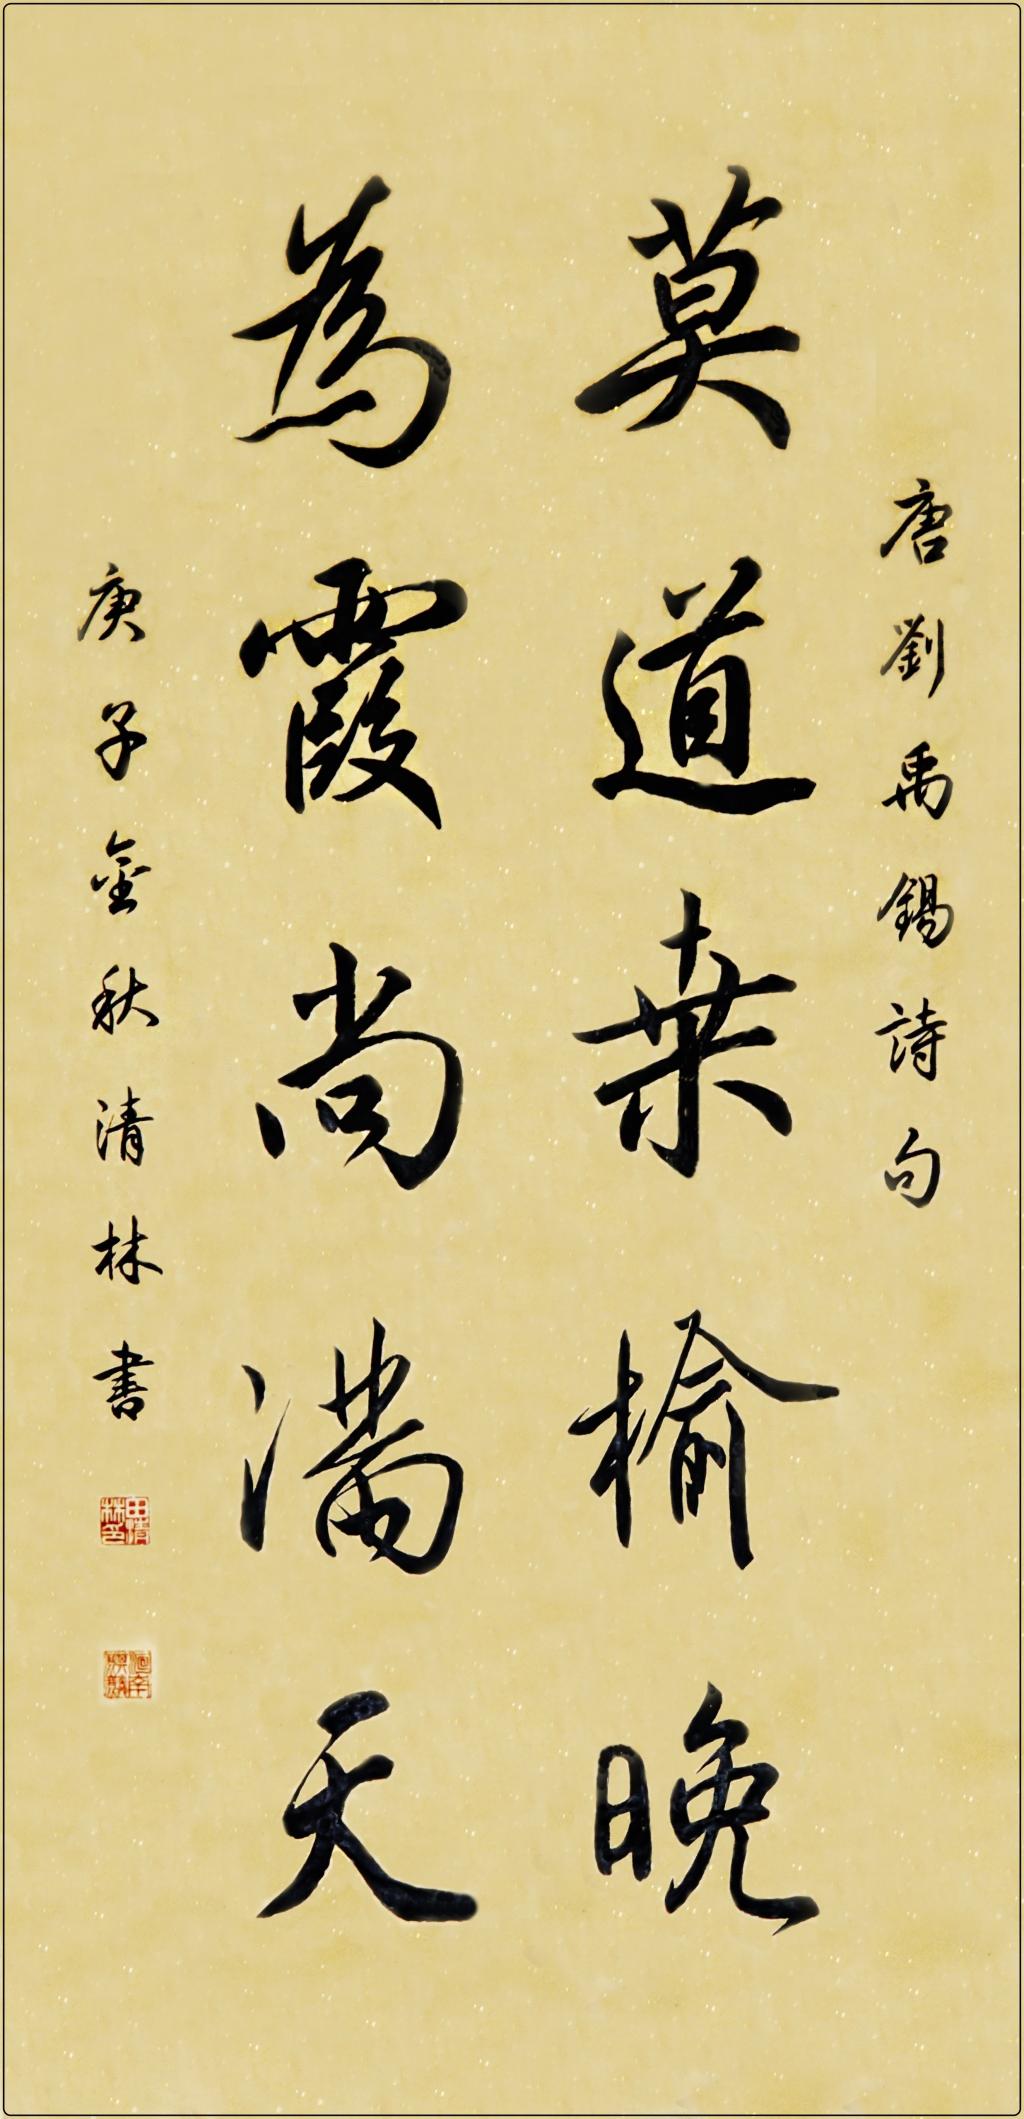 唐劉禹錫詩句
莫道桒榆晚
為霞尚滿天
庚子金秋清林書
田清林印